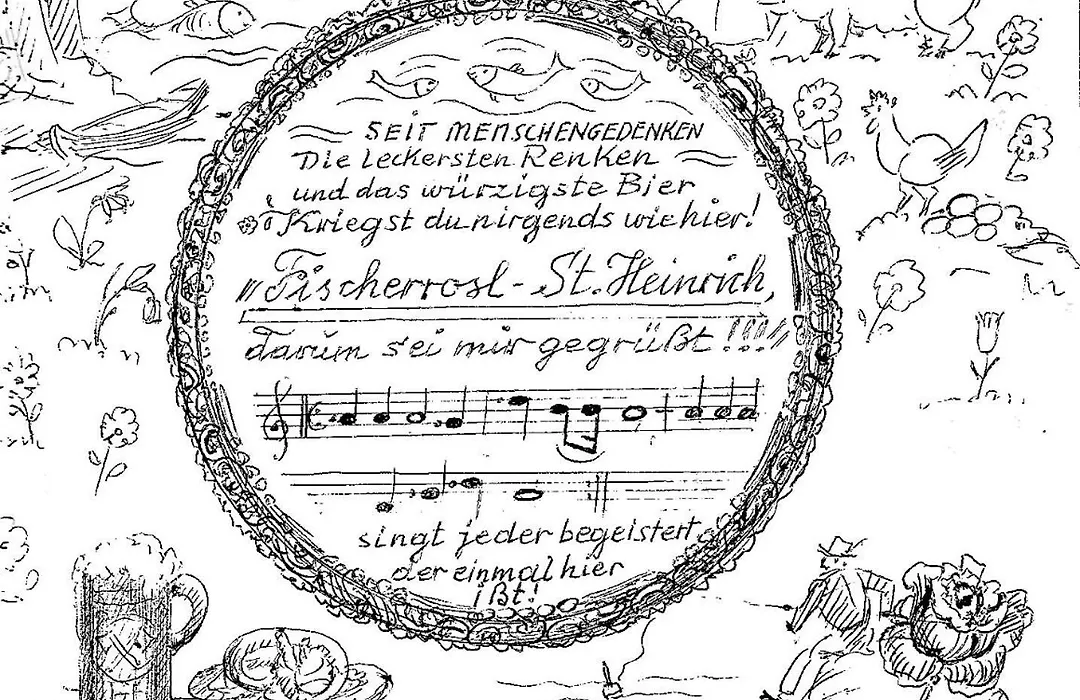 SEIT MENSCHENGEDENKEN
Die leckersten Renken
und das würzigste Bier
Kriegst du nirgends wie hier!
"Fischerrosl - St. Heinrich,
darum sei mir gegrüßt!!!"
singt jeder begeistert
der einmal hier
ißt!